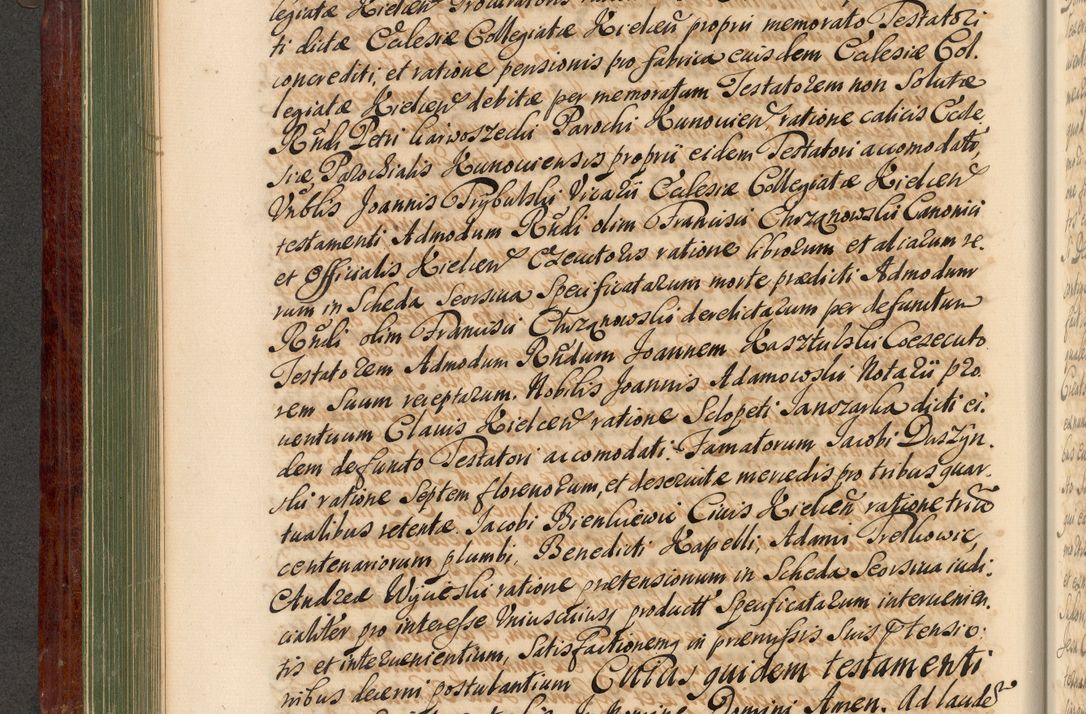 legiatæ Kielceñ Procuratoris
ti dictæ Ecclesiæ Collegiatæ Kielceñ proprii memorato Testatori
concrediti, et ratione pensionis pro fabrica eiusdem Ecclesiæ Col,
legiatæ Kielceñ debitæ per memoratum Testatorem non Solutæ
Rñdi Petri Parochi Kunovieñ, ratione calicis Eccle,
siæ Parochialis Kunoviensis proprii eidem Testatori accomodati,
Vñblis Joannis Przybulski Vicarii Ecclesiæ Collegiatæ Kielceñ
testamenti Admodum Rñdi olim Francisci Chrzanowski Canonici
et Officialis Kielceñ Exectoris ratione librorum et aliarum re,
rum in Scheda Seorsiva Specificatarum morte prædicti Admodum
Rñdi olim Francisci Chrzanowski derelictarum per defunctum
Testatorem Admodum Rñdum Joannem Rasztulski Coexecuto,
rem Suum receptarum. Nobilis Joannis Adamowski Notarii pro,
uentuum Clavis Kielceñ ratione Sclopeti Janczarka dicti ei,
dem defuncto Testatori accomodati. Famatorum Jacobi Daszyn,
ski ratione Septem florenorum, et deservitæ mercedis pro tribus quar,
tualibus retentæ. Jacobi Bienkiewic Civis Kielceñ ratione trium
centenariorum plumbi, Benedicti Kapelli, Adami Trelkowic,
Andreæ ratione prætensionum in Scheda Seorsiva iudi,
cialiter pro interesse Uniuscuiusq product Specificatarum intervenien,
tis et intervenientium, Satisfactionemq in præmissis Suis prætensio,
nibus decerni postulantium Cuius quidem testamenti
Domini Amen. Ad laudem